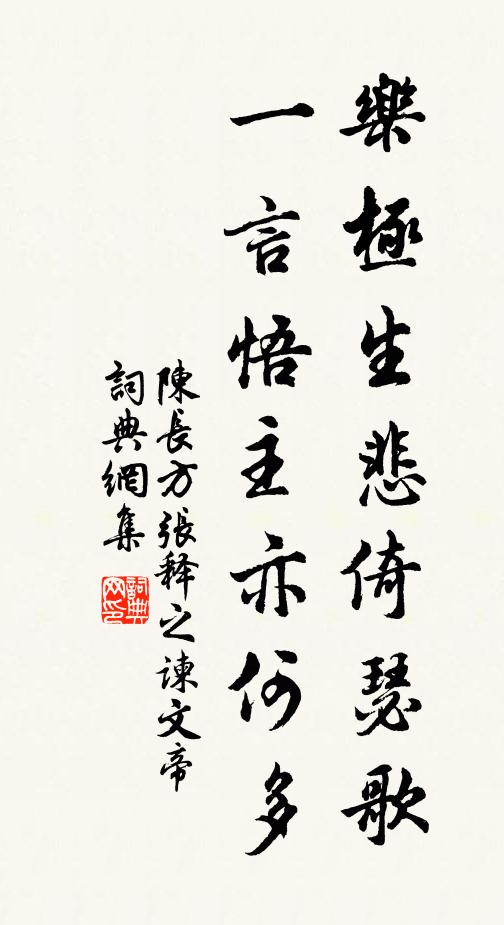 樂極生悲倚瑟歌
一言悟主亦何多
陳長方張释之諫文帝
詞典網集
詞典网印